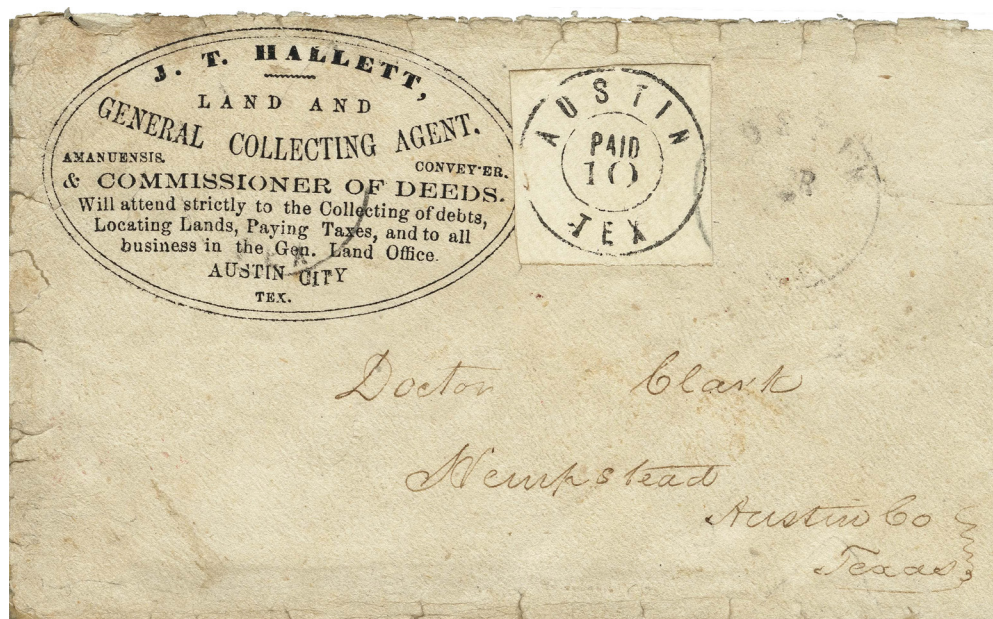 J. T. HALLETT,
LAND AND
GENERAL COLLECTING AGENT.
AMANUENSIS. CONVEY'ER.
& COMMISSIONER OF DEEDS.
Will attend strictly to the Collecting of debts,
Locating Lands, Paying Taxes, and to all
business in the Gen. Land Office.
AUSTIN CITY
TEX.
AUSTIN
PAID
10
TEX
Doctor Clark
Hempstead
Austin Co
Texas